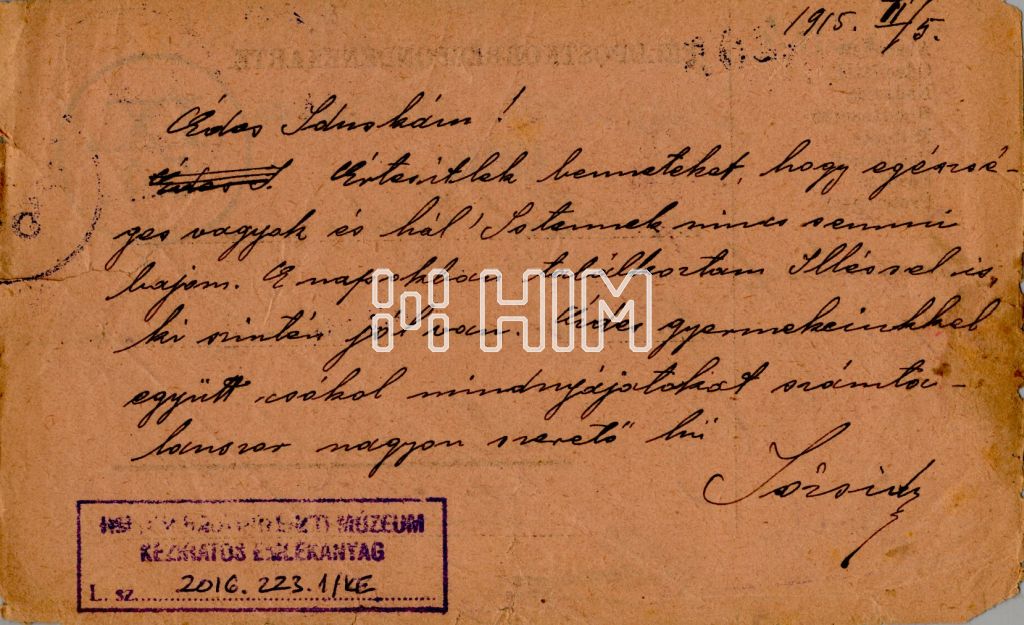 1915. II/5.
Édes Iduskám!
Édes I. Értesitlek benneteket, hogy egészsé-
ges vagyok és hál' Istennek nincs semmi
bajom. E napokban találkoztam Illéssel is,
ki szintén jól van. Édes gyermekeinkkel
együtt csókol mindnyájatokat számta-
lanszor nagyon szerető hü
Józsid
HIM
MÚZEUM
KÉZIRATOS EMLÉKANYAG
L. sz. 2016.223.1/KE